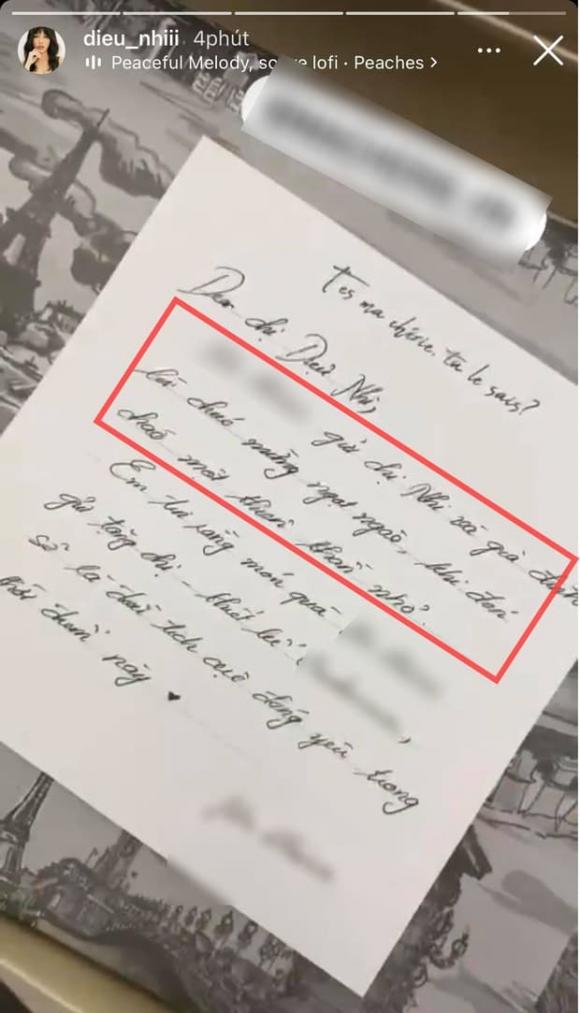 dieu_nhiii 4phút
Peaceful Melody, so lofi · Peaches >
T'es ma chérie. tu le sais?
Dear chị Diệu Nhi,
gửi chị Nhi và gia đình
lời chúc mừng ngọt ngào, khi đón
chào một thiên thần nhỏ.
Em tin rằng món quà
gửi tặng chị -
sẽ là chữ tích cực đáng yêu trong
thời điểm này ♥